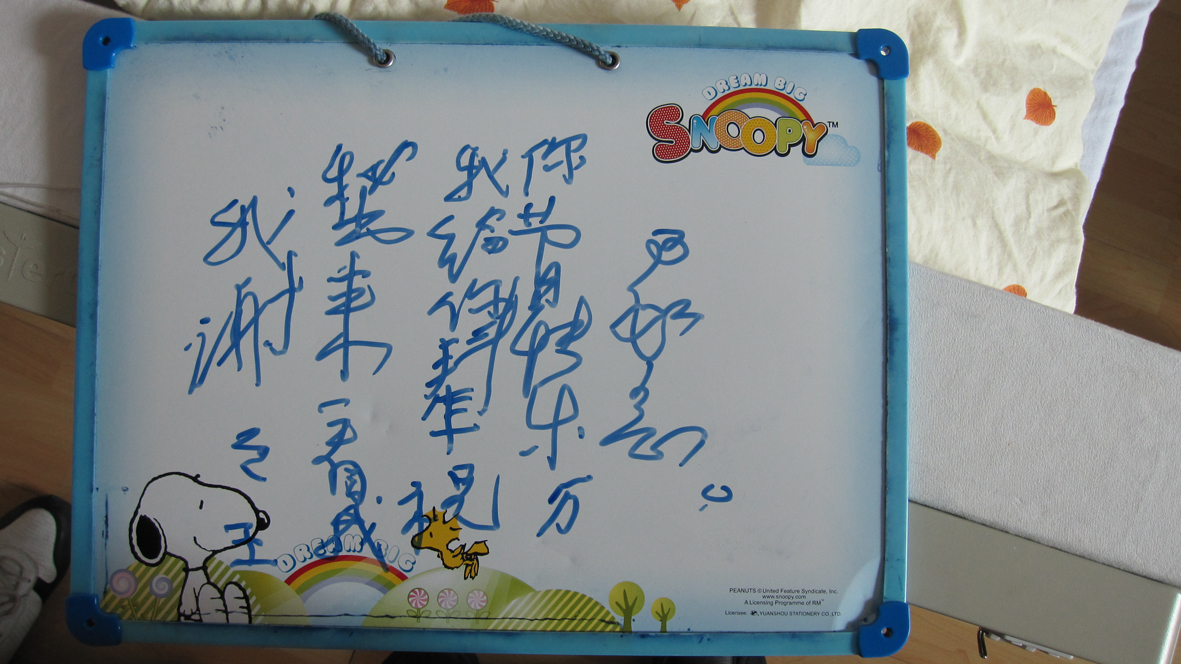 我谢
来看我
我给你拜年祝
你节日快乐万
事如意。
DREAM BIG
SNOOPY™
DREAM BIG
PEANUTS © United Feature Syndicate, Inc.
www.snoopy.com
A Licensing Programme of RM™
Licensee: YUANSHOU STATIONERY CO.,LTD.